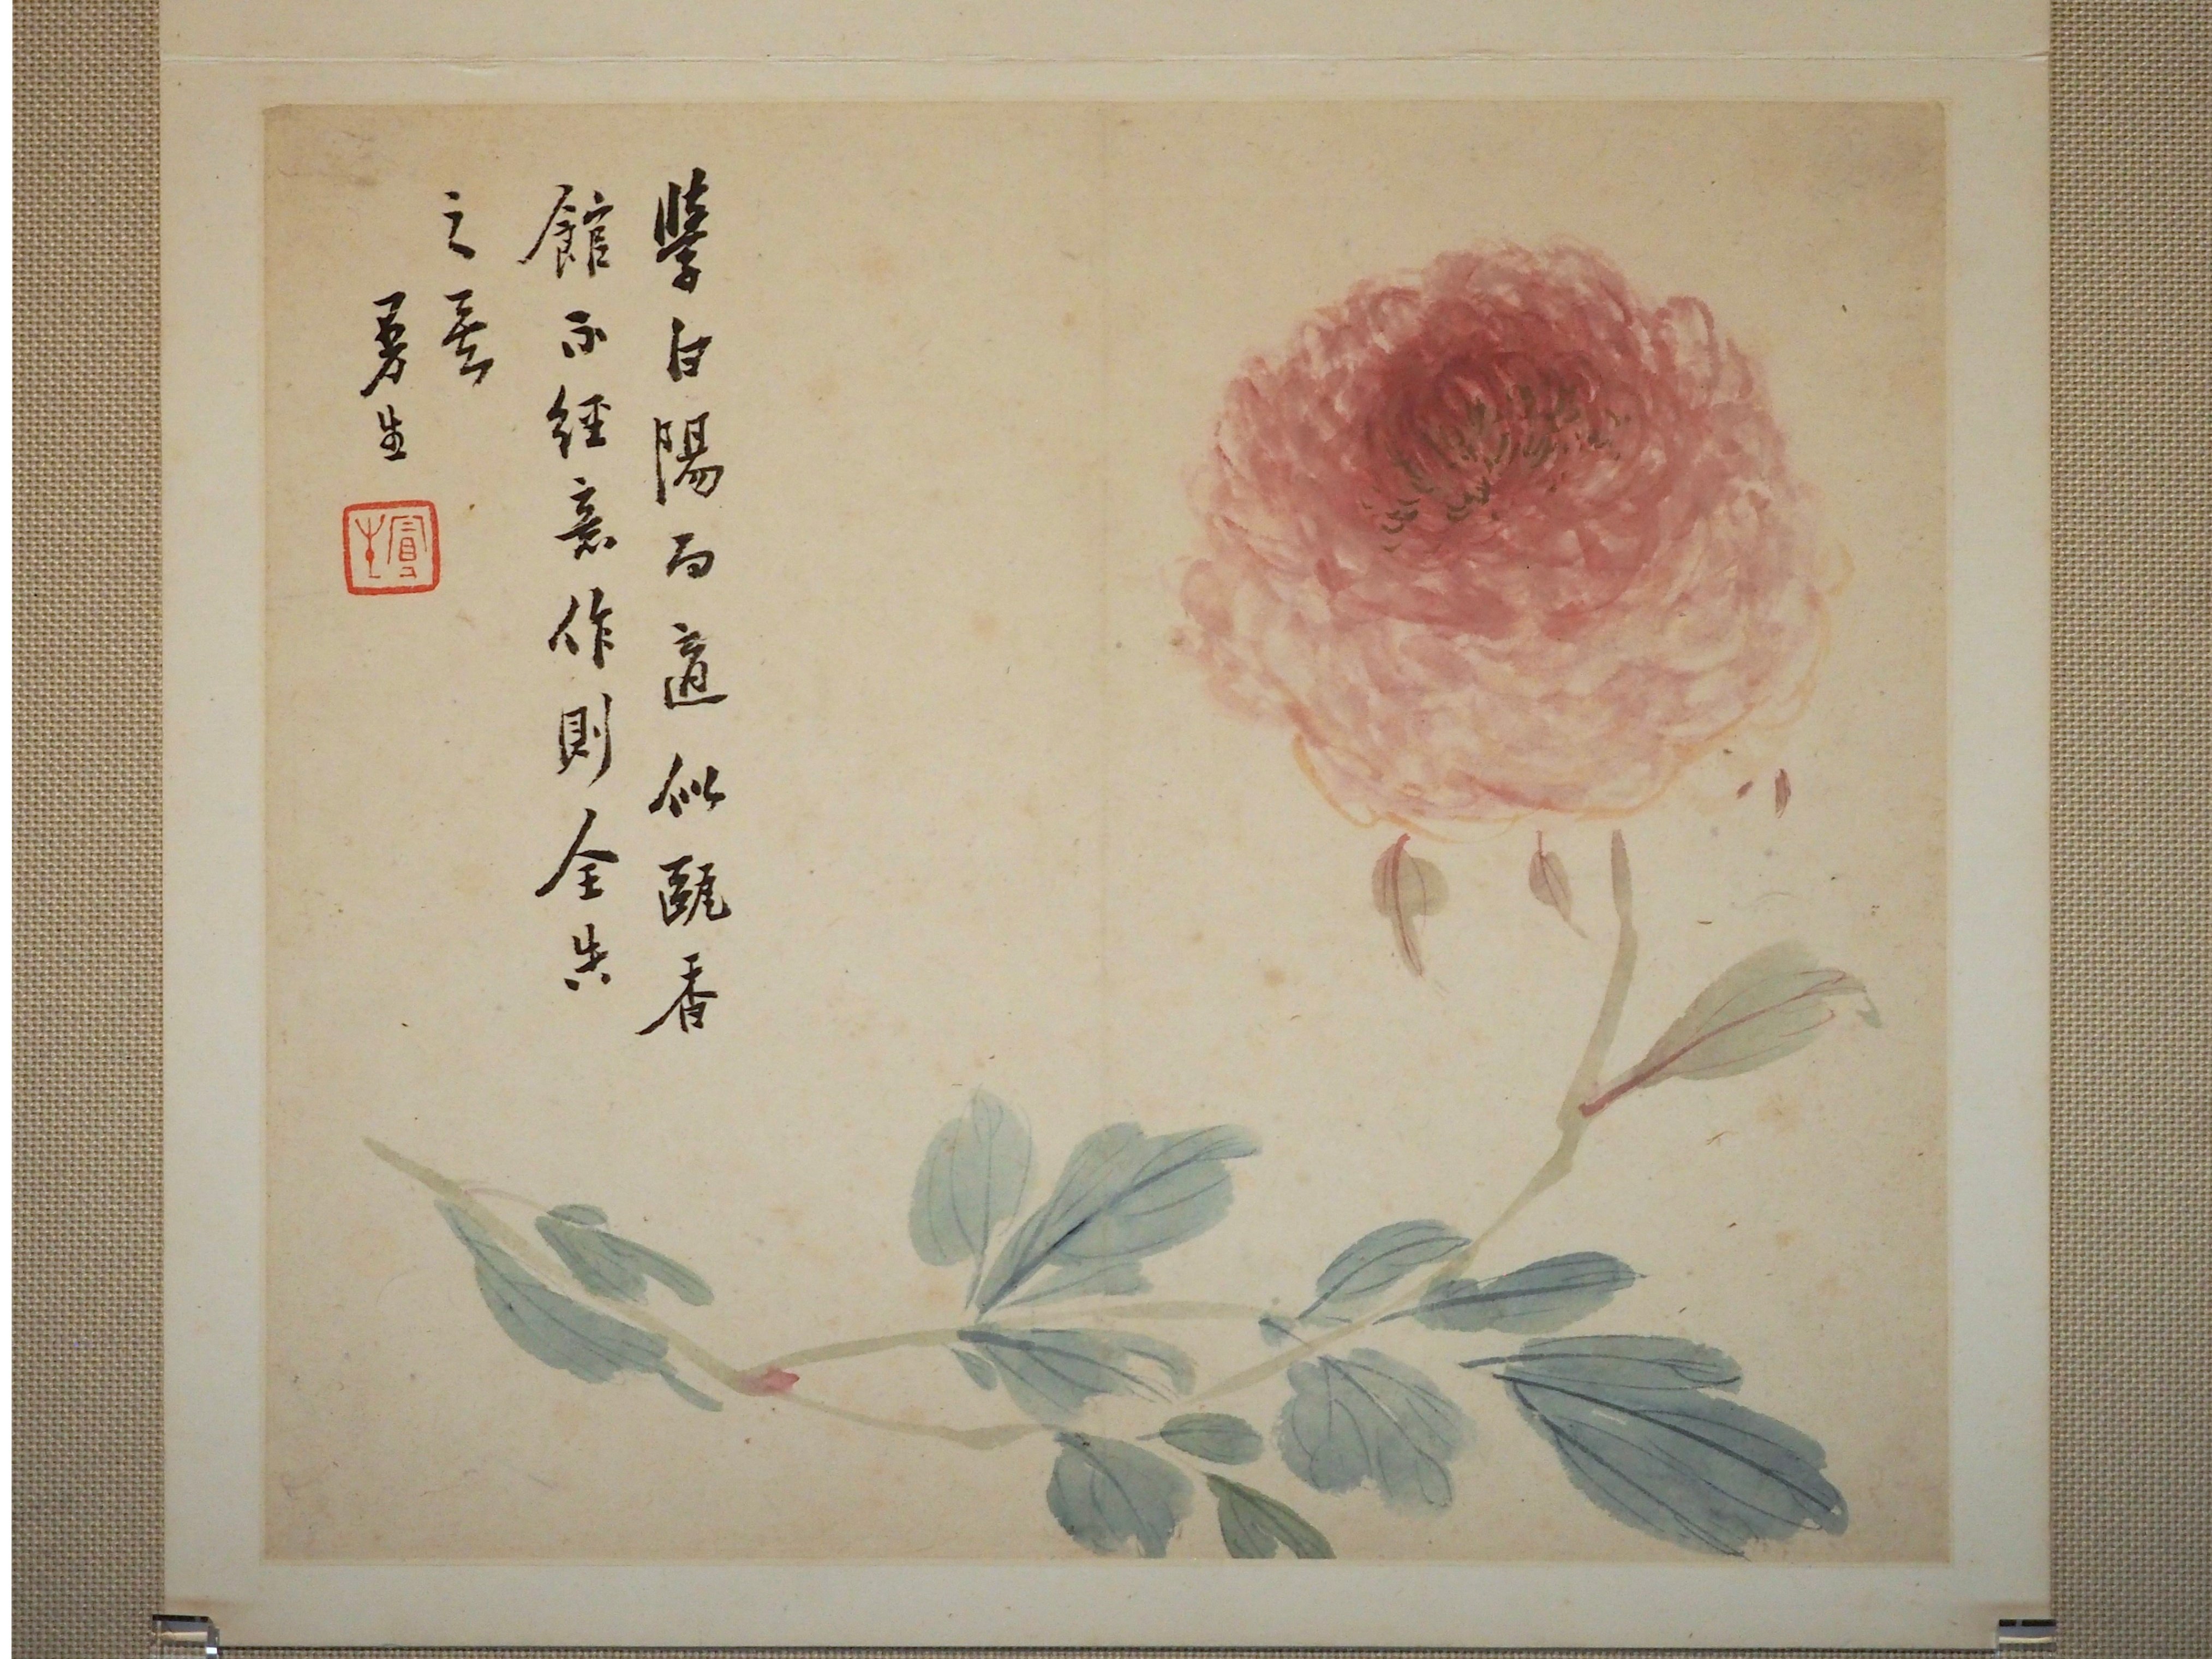 學白陽而適似甌香
館不經意作則全失
之矣
生